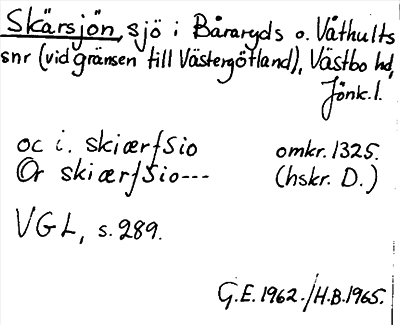 Skärsjön, sjö i Båraryds o. Våthults
snr (vid gränsen till Västergötland), Västbo hd,
Jönk.l.
oc i. skiærfSio omkr. 1325.
Or skiærfSio--- (hskr. D.)
VGL, s. 289.
G.E. 1962./H.B. 1965.